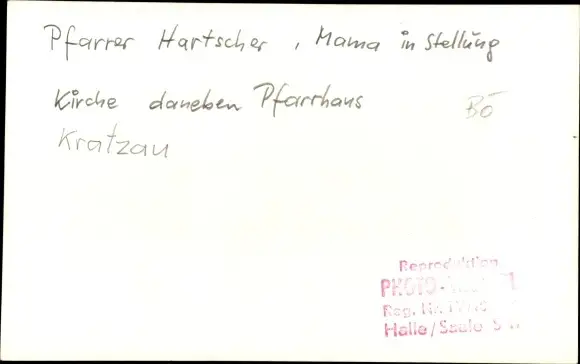 Pfarrer Hartscher, Mama in Stellung
Kirche daneben Pfarrhaus Bö
Kratzau
Reproduktion
PHOTO-
Reg. Nr.
Halle/Saale S